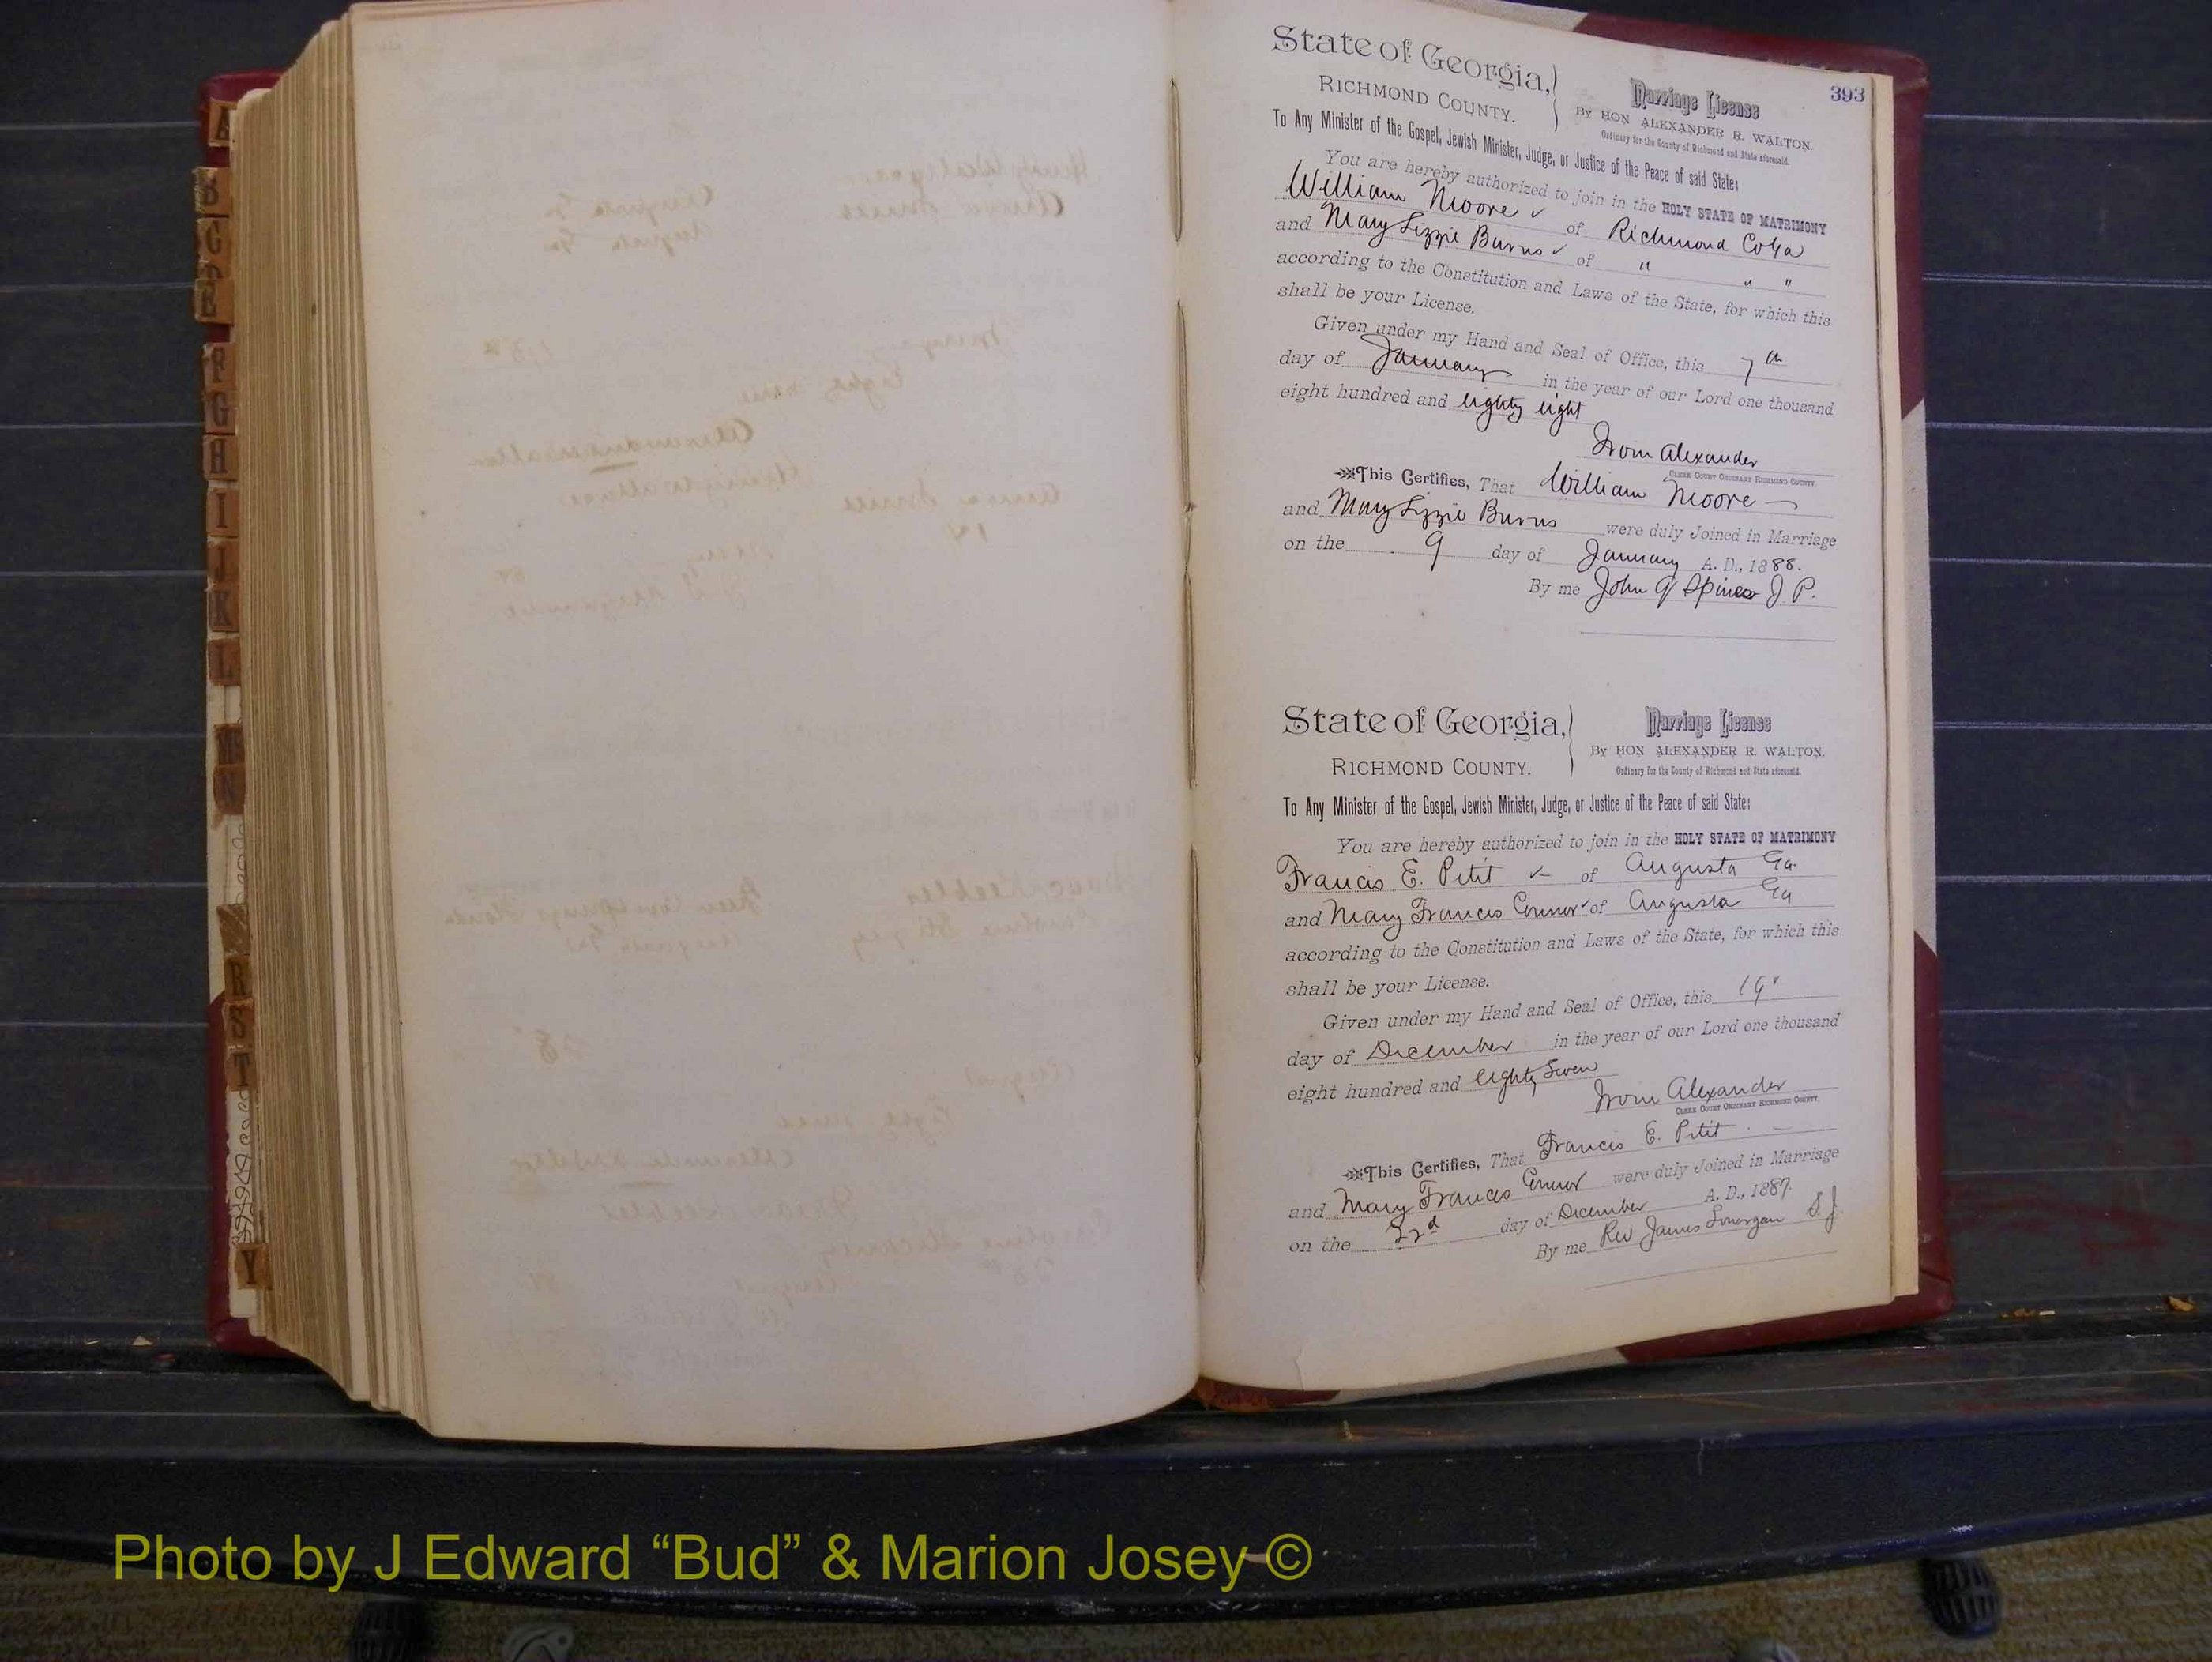 393
State of Georgia,
RICHMOND COUNTY.
Marriage License
By HON ALEXANDER R. WALTON.
Ordinary for the County of Richmond and State aforesaid.
To Any Minister of the Gospel, Jewish Minister, Judge, or Justice of the Peace of said State:
You are hereby authorized to join in the HOLY STATE OF MATRIMONY
William Moore of Richmond Co Ga
and Mary Lizzie Burns of " " "
according to the Constitution and Laws of the State, for which this
shall be your License.
Given under my Hand and Seal of Office, this 7th
day of January in the year of our Lord one thousand
eight hundred and eighty eight
Alexander
CLERK COURT ORDINARY RICHMOND COUNTY.
This Certifies, That William Moore
and Mary Lizzie Burns were duly Joined in Marriage
on the 9 day of January A. D., 1888.
By me John J. P.
State of Georgia,
RICHMOND COUNTY.
Marriage License
By HON ALEXANDER R. WALTON.
Ordinary for the County of Richmond and State aforesaid.
To Any Minister of the Gospel, Jewish Minister, Judge, or Justice of the Peace of said State:
You are hereby authorized to join in the HOLY STATE OF MATRIMONY
Francis E. Petit of Augusta Ga.
and Mary Francis Connor of Augusta Ga
according to the Constitution and Laws of the State, for which this
shall be your License.
Given under my Hand and Seal of Office, this 19"
day of December in the year of our Lord one thousand
eight hundred and eighty Seven
Alexander
CLERK COURT ORDINARY RICHMOND COUNTY.
This Certifies, That Francis E. Petit
and Mary Francis Connor were duly Joined in Marriage
on the 22d day of December A. D., 1887.
By me Rev James Lonergan S. J.
A
B
C
D
E
F
G
H
I
J
K
L
M
N
R
S
T
Y
Photo by J Edward “Bud” & Marion Josey ©